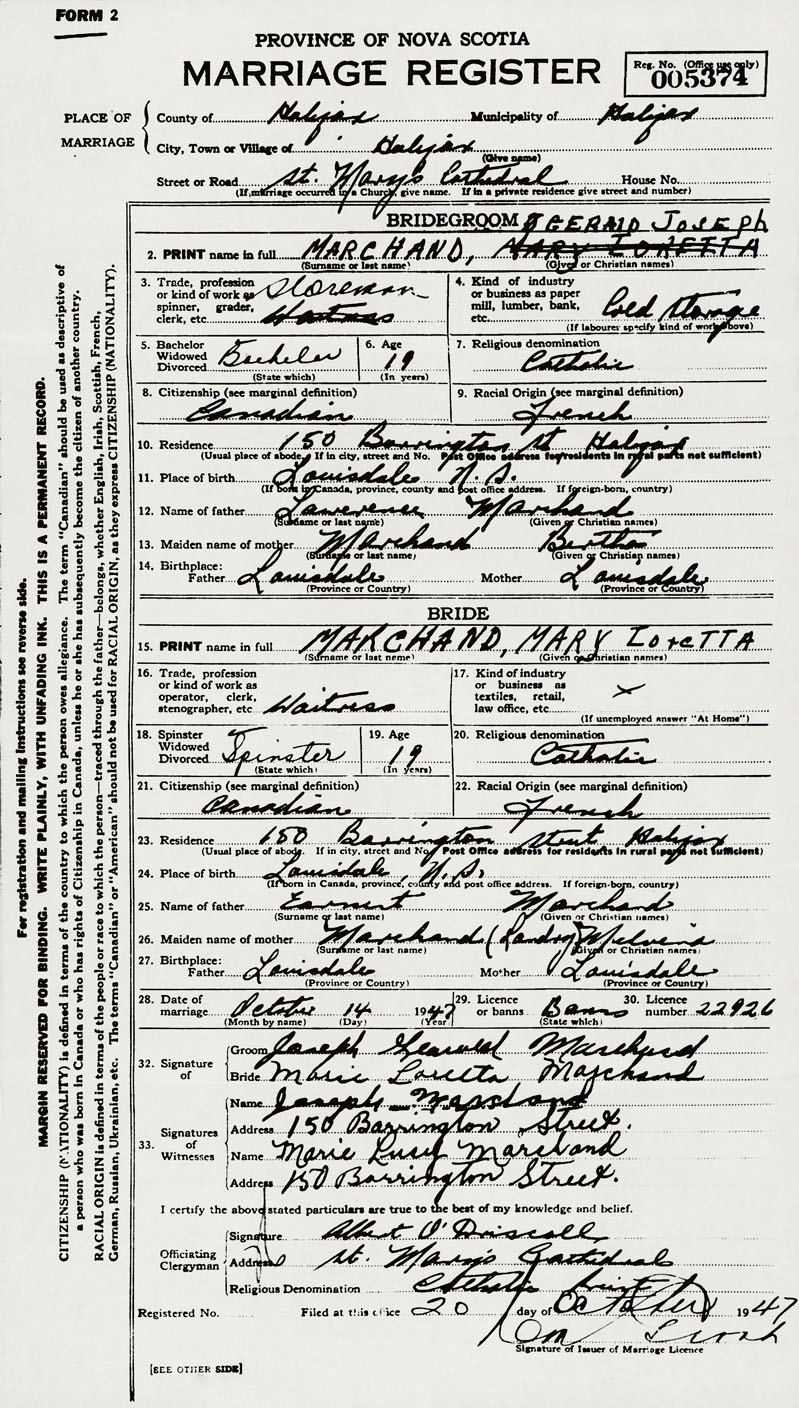 FORM 2
PROVINCE OF NOVA SCOTIA
MARRIAGE REGISTER
Reg. No. (Office use only)
005374
PLACE OF MARRIAGE
County of Halifax Municipality of Halifax
City, Town or Village of Halifax
(Give name)
Street or Road St. Mary's Cathedral House No.
(If marriage occurred in a Church, give name. If in a private residence give street and number)
BRIDEGROOM GERALD JOSEPH
2. PRINT name in full MARCHAND, MARY LORETTA
(Surname or last name) (Given or Christian names)
3. Trade, profession or kind of work as spinner, grader, clerk, etc. Storeman Waitress
4. Kind of industry or business as paper mill, lumber, bank, etc. Cold Storage
(If labourer specify kind of work above)
5. Bachelor Widowed Divorced Bachelor
(State which)
6. Age 19
(In years)
7. Religious denomination
Catholic
8. Citizenship (see marginal definition)
Canadian
9. Racial Origin (see marginal definition)
French
10. Residence 150 Barrington St Halifax
(Usual place of abode. If in city, street and No. Post Office address for residents in rural parts not sufficient)
11. Place of birth Louisdale N.S.
(If born in Canada, province, county and post office address. If foreign-born, country)
12. Name of father Lawrence Marchand
(Surname or last name) (Given or Christian names)
13. Maiden name of mother Marchand Bertha
(Surname or last name) (Given or Christian names)
14. Birthplace:
Father Louisdale Mother Louisdale
(Province or Country) (Province or Country)
BRIDE
15. PRINT name in full MARCHAND, MARY LORETTA
(Surname or last name) (Given or Christian names)
16. Trade, profession or kind of work as operator, clerk, stenographer, etc Waitress
17. Kind of industry or business as textiles, retail, law office, etc. x
(If unemployed answer "At Home")
18. Spinster Widowed Divorced Spinster
(State which)
19. Age 19
(In years)
20. Religious denomination
Catholic
21. Citizenship (see marginal definition)
Canadian
22. Racial Origin (see marginal definition)
French
23. Residence 150 Barrington Street Halifax
(Usual place of abode. If in city, street and No. Post Office address for residents in rural parts not sufficient)
24. Place of birth Louisdale, N.S.
(If born in Canada, province, county and post office address. If foreign-born, country)
25. Name of father Earnest Marchand
(Surname or last name) (Given or Christian names)
26. Maiden name of mother Marchand (Landry) Melvina
(Surname or last name) (Given or Christian names)
27. Birthplace:
Father Louisdale Mother Louisdale
(Province or Country) (Province or Country)
28. Date of marriage October 14 1947
(Month by name) (Day) (Year)
29. Licence or banns Banns
(State which)
30. Licence number 22926
32. Signature of
Groom Joseph Gerald Marchand
Bride Marie Loretta Marchand
33. Signatures of Witnesses
Name Joseph Marchand
Address 150 Barrington Street.
Name Marie Marchand
Address 150 Barrington Street.
I certify the above stated particulars are true to the best of my knowledge and belief.
Officiating Clergyman
Signature Albert O'Driscoll
Address St. Mary's Cathedral
Religious Denomination Catholic Priest
Registered No. Filed at this office 20 day of October 1947
Signature of Issuer of Marriage Licence
[SEE OTHER SIDE]
For registration and mailing instructions see reverse side.
MARGIN RESERVED FOR BINDING. WRITE PLAINLY, WITH UNFADING INK. THIS IS A PERMANENT RECORD.
CITIZENSHIP (NATIONALITY) is defined in terms of the country to which the person owes allegiance. The term "Canadian" should be used as descriptive of
a person who was born in Canada or who has rights of Citizenship in Canada, unless he or she has subsequently become the citizen of another country.
RACIAL ORIGIN is defined in terms of the people or race to which the person—traced through the father—belongs, whether English, Irish, Scottish, French,
German, Russian, Ukrainian, etc. The terms "Canadian" or "American" should not be used for RACIAL ORIGIN, as they express CITIZENSHIP (NATIONALITY).